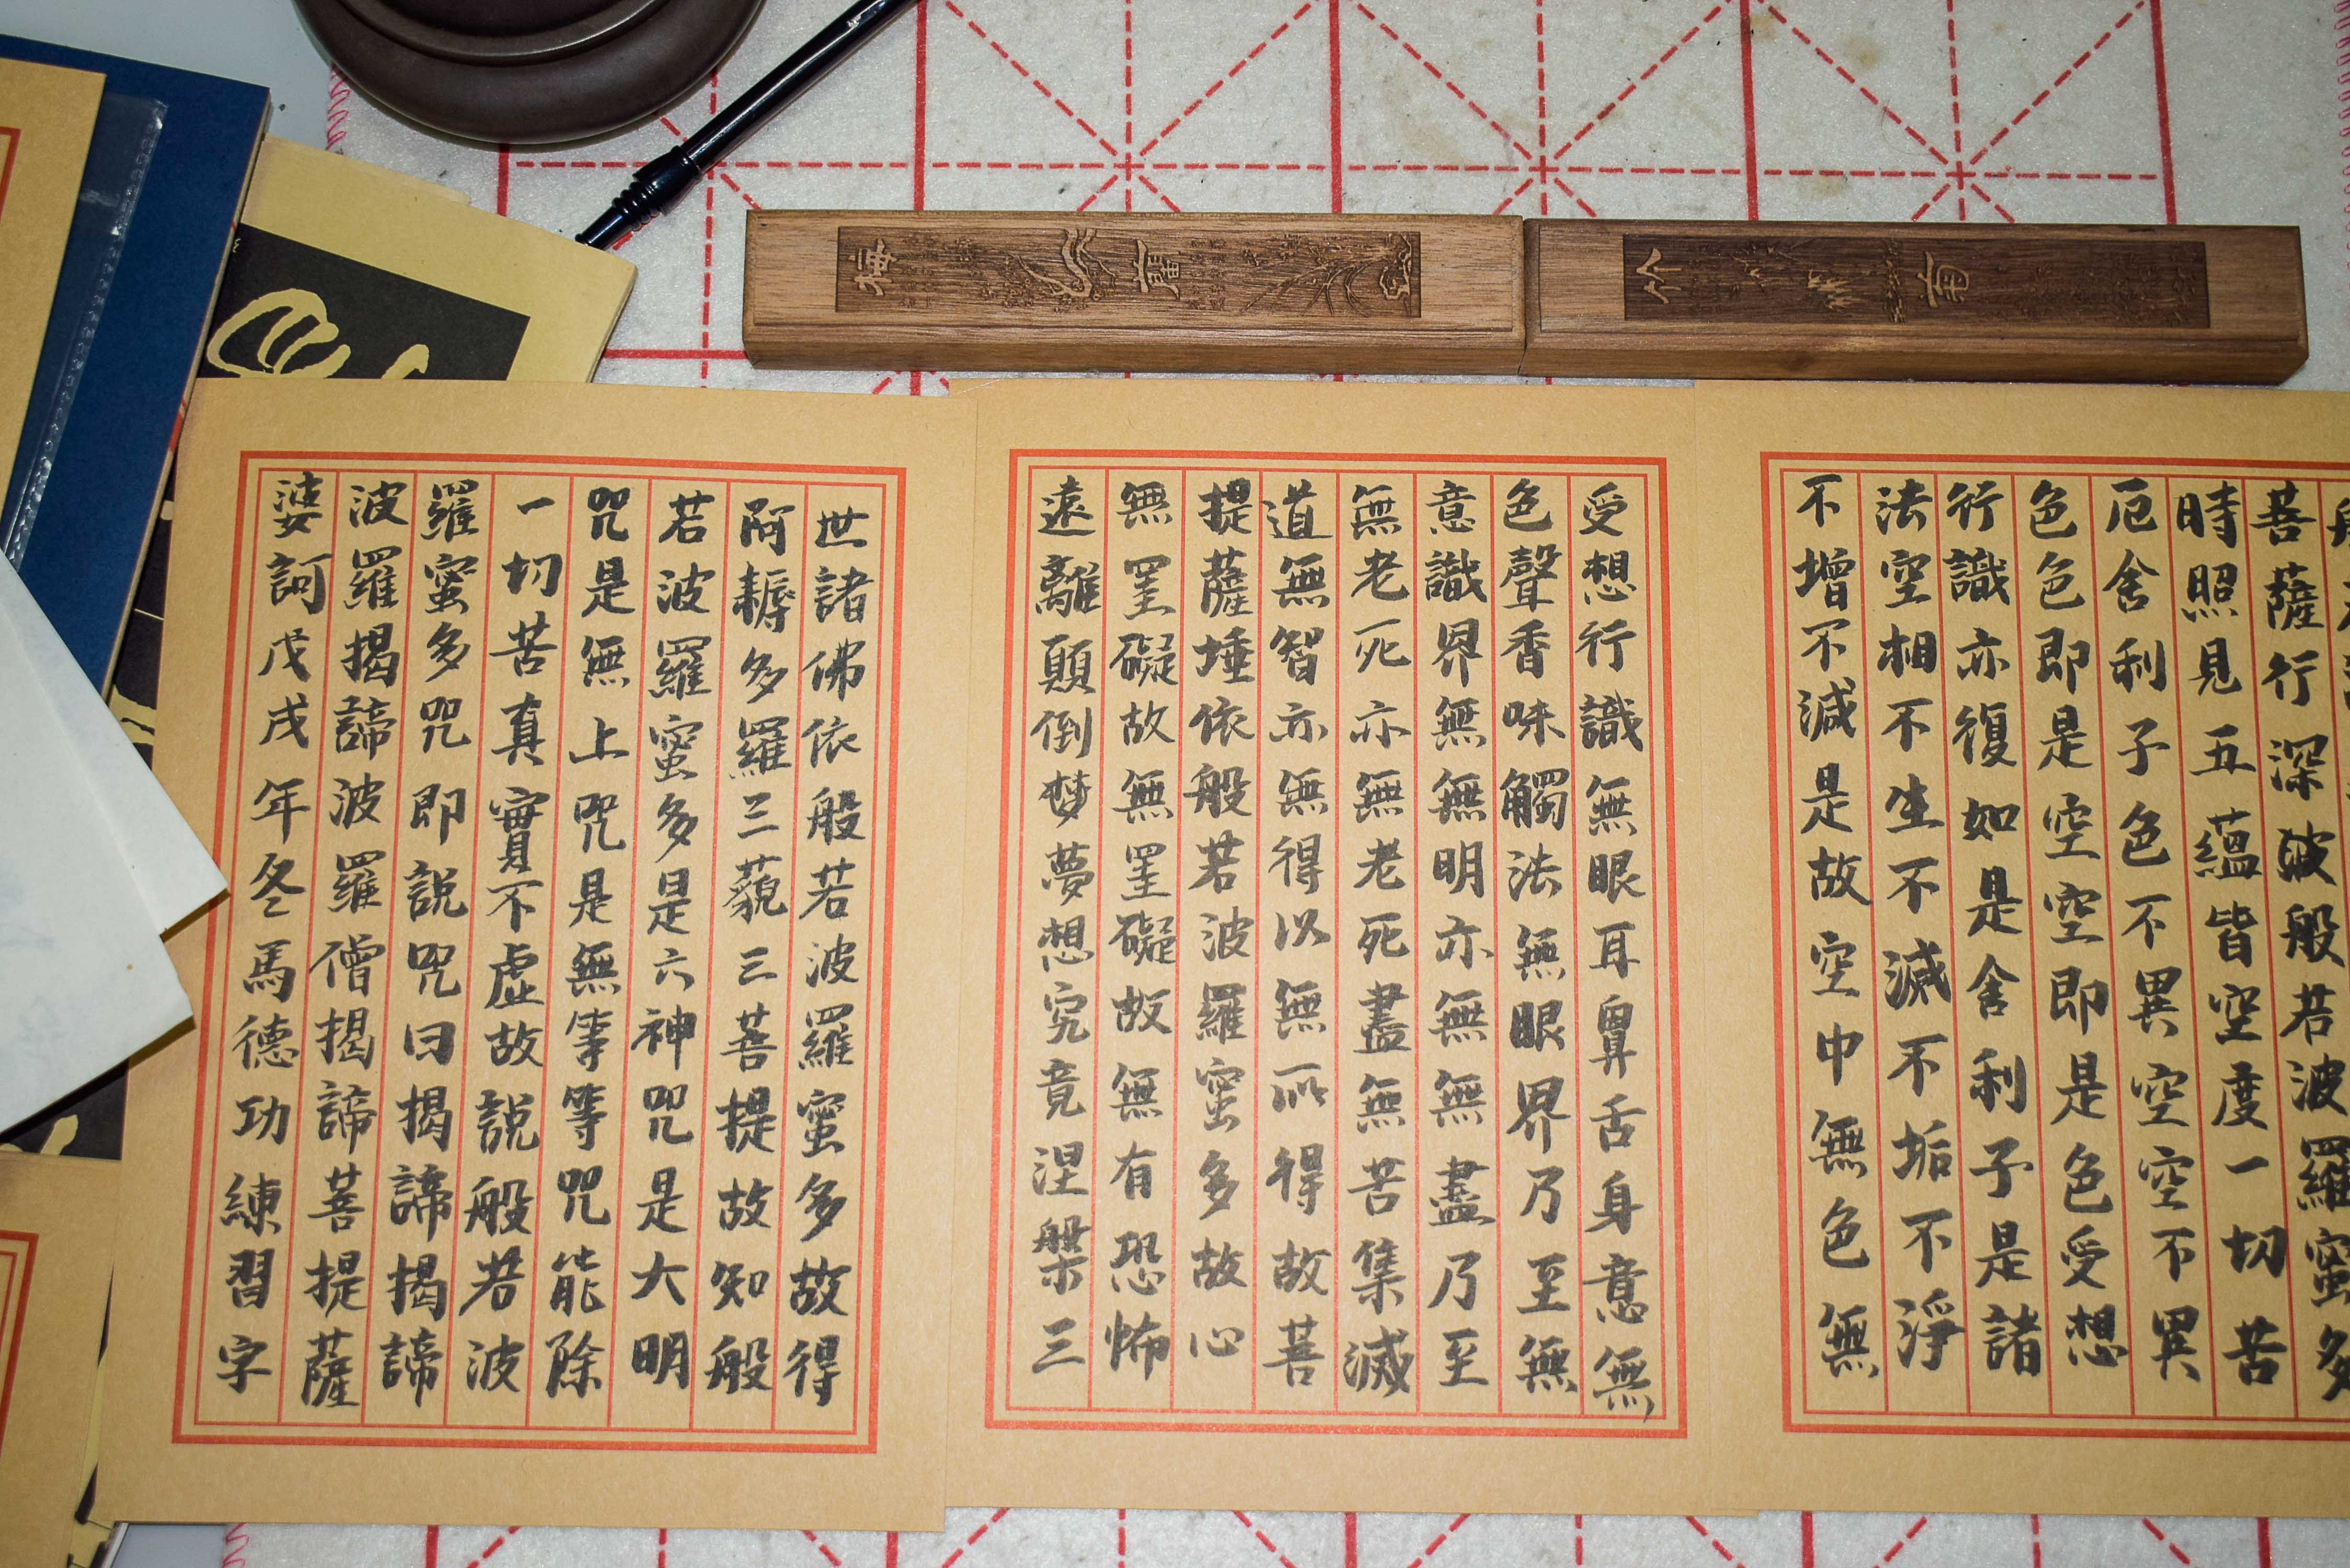 梅 蘭
竹 菊
菩薩行深波般若波羅蜜多
時照見五蘊皆空度一切苦
厄舍利子色不異空空不異
色色即是空空即是色受想
行識亦復如是舍利子是諸
法空相不生不滅不垢不淨
不增不減是故空中無色無
受想行識無眼耳鼻舌身意無
色聲香味觸法無眼界乃至無
意識界無無明亦無無盡乃至
無老死亦無老死盡無苦集滅
道無智亦無得以無所得故菩
提薩埵依般若波羅蜜多故心
無罣礙故無罣礙故無有恐怖
遠離顛倒梦夢想究竟涅槃三
世諸佛依般若波羅蜜多故得
阿耨多羅三藐三菩提故知般
若波羅蜜多是六神咒是大明
咒是無上咒是無等等咒能除
一切苦真實不虛故說般若波
羅蜜多咒即說咒曰揭諦揭諦
波羅揭諦波羅僧揭諦菩提薩
婆訶戊戌年冬馬德功練習字